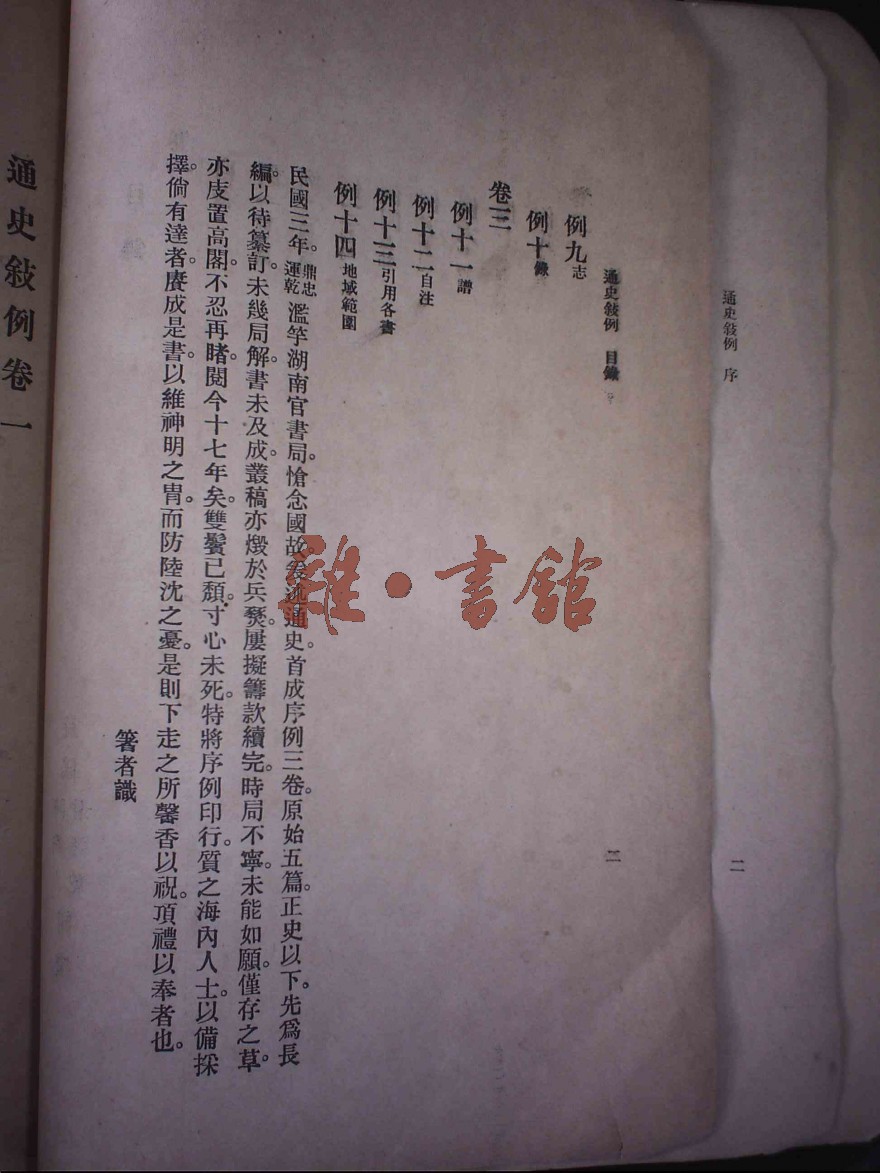 通史敍例 序
二
通史敍例 目錄
二
例九 志
例十 錄
卷三
例十一 譜
例十二 自注
例十三 引用各書
例十四 地域範圍
民國三年。鼎忠運乾濫竽湖南官書局。愴念國故。爰述通史。首成序例三卷。原始五篇。正史以下。先爲長
編。以待纂訂。未幾局解書未及成。叢稿亦燬於兵燹。屢擬籌款續完。時局不寧。未能如願。僅存之草
亦庋置高閣。不忍再睹。閱今十七年矣。雙鬢已頹。寸心未死。特將序例印行。質之海內人士。以備採
擇。倘有達者。賡成是書。以維神明之胄。而防陸沈之憂。是則下走之所馨香以祝。頂禮以奉者也。
箸者識
通史敍例卷一
雜·書館